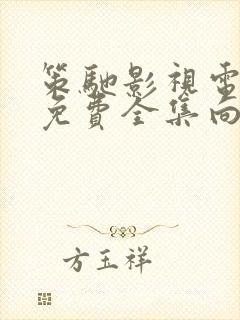 策馳影視電
免費全集向
方玉祥